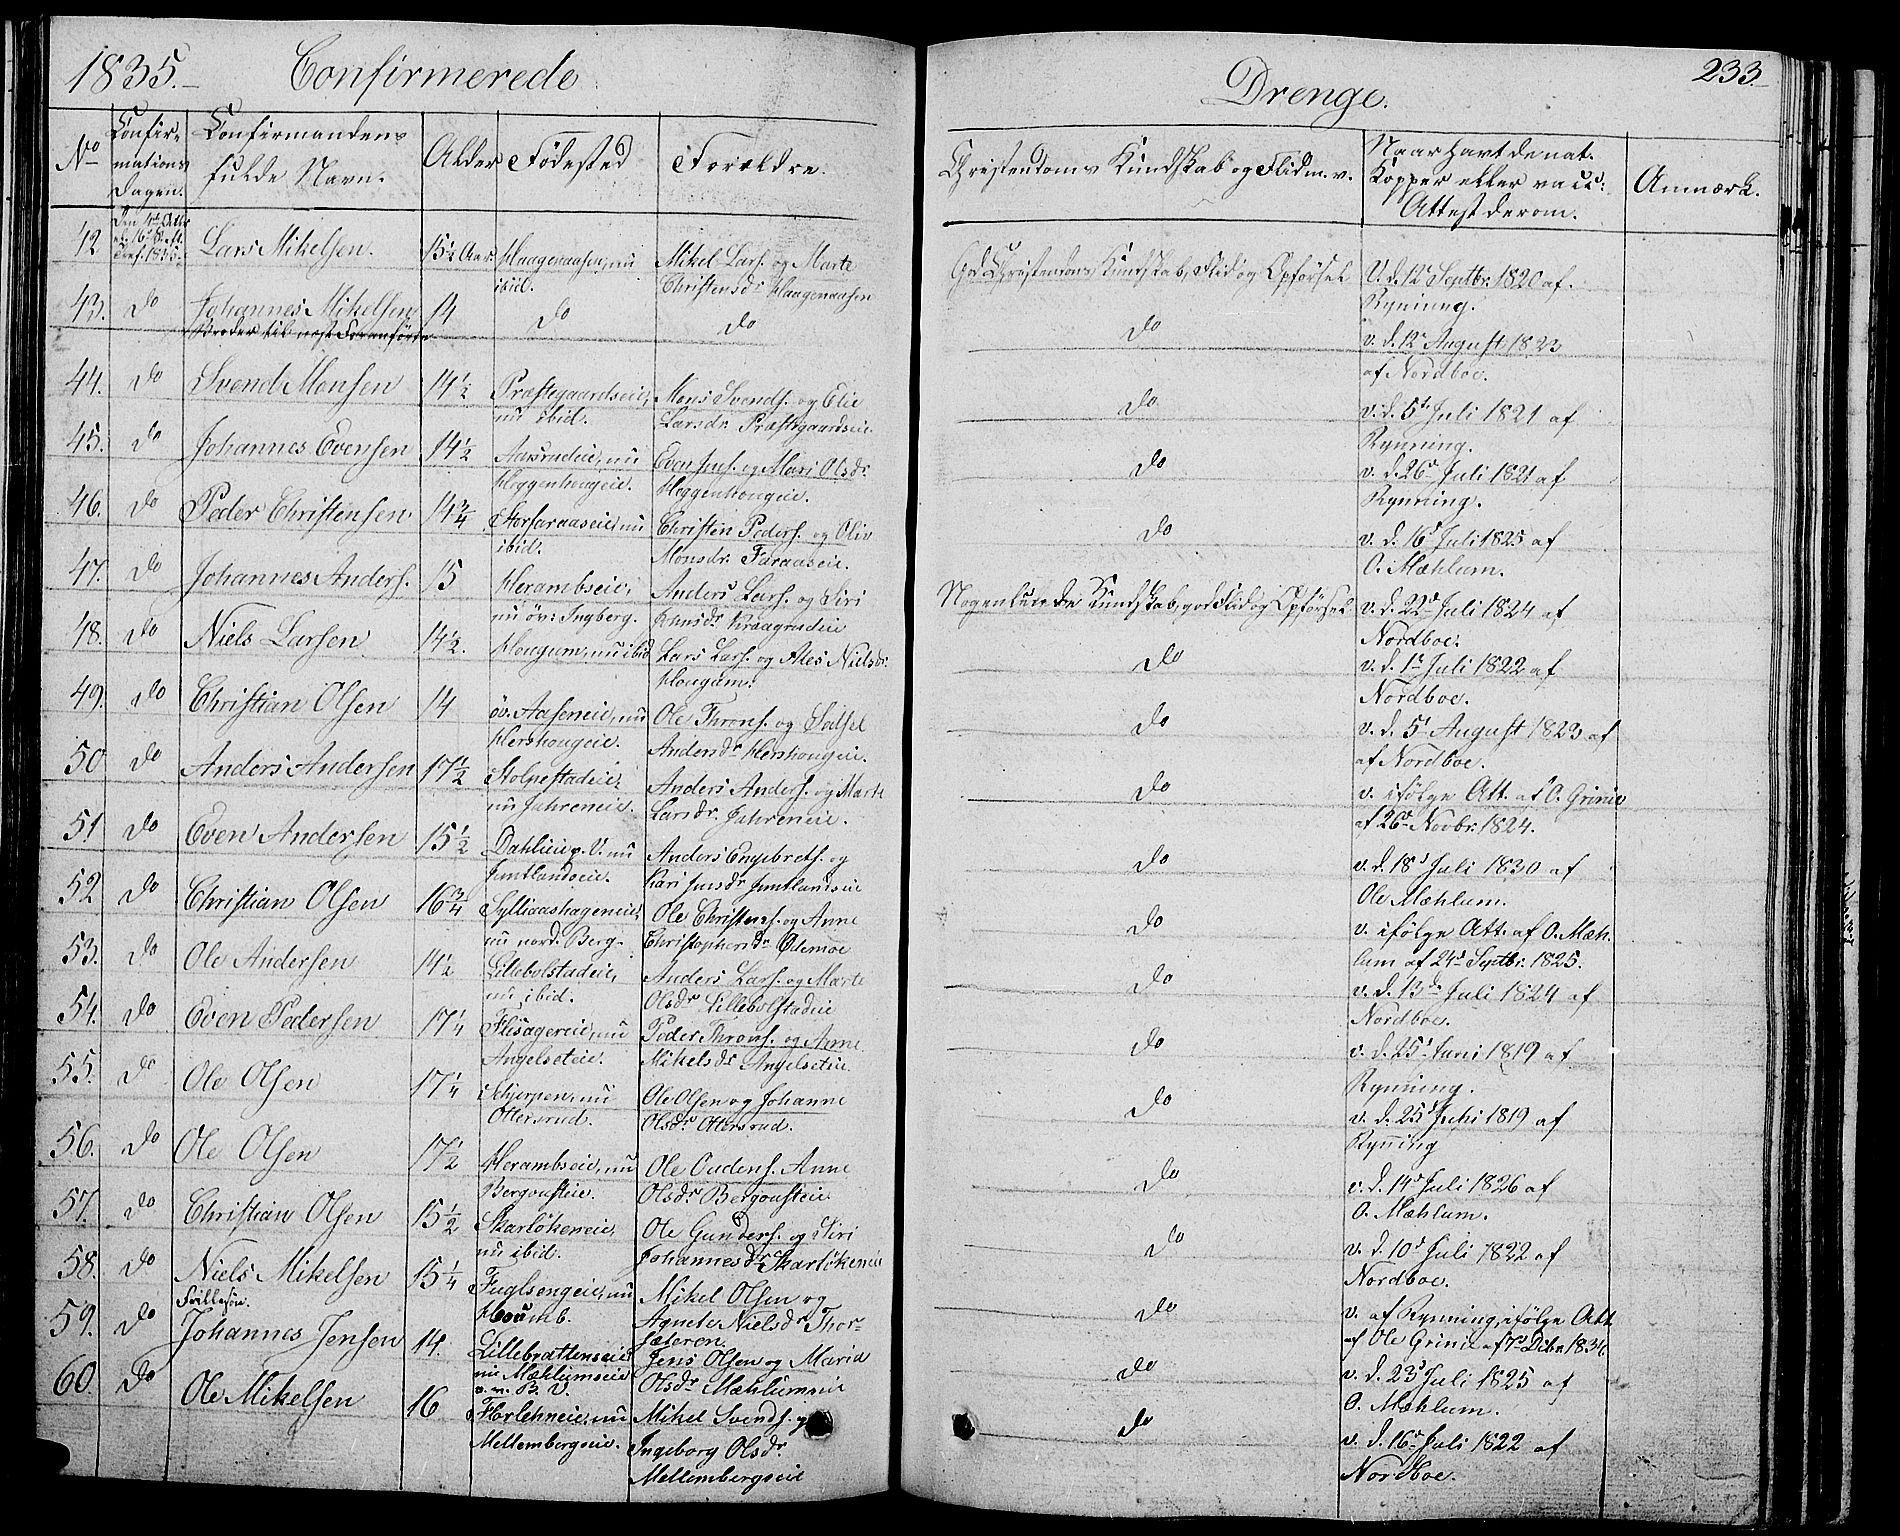 1835.
Confirmerede
Drenge.
233.
No
Confir-
mations
Dagen.
Confirmandens
fulde Navn.
Alder
Fødested
Forældre.
Christendoms Kundskab og Flid m. v.
Naar havt de nat.
Kopper eller vacc:
Attest derom.
Anmærk.
42
Lars Mikelsen.
15½ Aar
Haagenaasen, nu
ibid.
Mikel Lars. og Marte
Christensdr Haagenaasen
Gd Christendoms Kundskab, Flid og Opførsel
V. d. 12 Septbr. 1820 af
Rynning.
43. do Johannes Mikelsen 14 do do
do
v. d. 12 August 1823
af Nordboe.
44. do Svend Monsen 14½ Præstegaardseie,
nu ibid.
Mons Svends. og Elie
Larsdr. Præstegaardseie
do
v. d. 5t Juli 1821 af
Rynning.
45. do Johannes Evensen 14½ Aasrudeie, nu
Heggenhougeie.
Even Jens. og Mari Olsdr
Heggenhougeie.
do
v. d. 26 Juli 1821 af
Rynning.
46. do Peder Christensen 14¾ Storfaraaseie, nu
ibid.
Christen Peders. og Oliv
Monsdr. Faraaseie.
do
v. d. 16 Juli 1825 af
O. Mæhlum.
47. do Johannes Anders. 15 Herambseie,
nu öv: Ingberg.
Anders Lars. og Siri
Hansdr Kraagrudeie
Nogenlunde Kundskab, god Flid og Opførsel
v. d. 22 Juli 1824 af
Nordboe.
48. do Niels Larsen 14½. Hougum, nu ibid
Lars Lars. og Ales Nielsdr.
Hougum.
do
v. d. 1 Juli 1822 af
Nordboe.
49. do Christian Olsen 14 öv. Aaseneie, nu
Hershougeie.
Ole Throns. og Sidsel
Andersdr Hershougeie.
do
v. d. 5 August 1823 af
af Nordboe.
50 do Anders Andersen 17½ Stolpestadeie,
nu Jahreneie.
Anders Anders. og Marte
Larsdr. Jahreneie.
do
v. ifølge Att. af O. Grinie
af 26 Novbr. 1824.
51 do Even Andersen 15½ Dahlieie p. V. nu
Jemtlandseie.
Anders Engebrets. og
Kari Jensdr Jemtlandseie
do
v. d. 18 Juli 1830 af
Ole Mæhlum.
52 do Christian Olsen 16¾ Sylliaashageneie,
nu nord. Berg.
Ole Christens. og Anne
Christophersdr Odemoe
do
v. ifølge Att. af O. Mæh-
lum af 24 Septbr. 1825.
53. do Ole Andersen 14½ Lillebolstadeie,
nu ibid.
Anders Lars. og Marte
Olsdr Lillebolstadeie
do
v. d. 13 Juli 1824 af
Nordboe.
54. do Even Pedersen 17¼ Flisagereie, nu
Angelseteie.
Peder Throns. og Anne
Mikelsdr Angelseteie.
do
v. d. 25 Juni 1819 af
Rynning.
55. do Ole Olsen 17¼ Schjerpen, nu
Ottersrud.
Ole Olsen og Johanne
Olsdr. Ottersrud.
do
v. d. 25 Juni 1819 af
Rynning
56. do Ole Olsen 17½ Herambseie, nu
Bergousteie.
Ole Oudens. Anne
Olsdr Bergousteie
do
v. d. 14 Juli 1826 af
O. Mæhlum.
57. do Christian Olsen 15½ Skarlökeneie,
nu ibid.
Ole Gunders. og Siri
Johannesdr Skarlökeneie
do
v. d. 10 Juli 1822 af
Nordboe.
58. do Niels Mikelsen 15¼ Fuglsengeie, nu
Mikel Olsen og
Agnete Nielsdr Thor-
sæteren.
do
v. af Rynning, ifølge Att.
af Ole Grinie
59. do Johannes Jensen 14. Lillebrattenseie
nu Mæhlumseie
Jens Olsen og Maria
Olsdr Mæhlumeie
do
v. d. 23 Juli 1825 af
O. Mæhlum.
60. do Ole Mikelsen 16 Horlehneie, nu
Mellembergseie.
Mikel Svends.
Ingeborg Olsdr.
Mellembergseie
do
v. d. 16 Juli 1822 af
Nordboe.